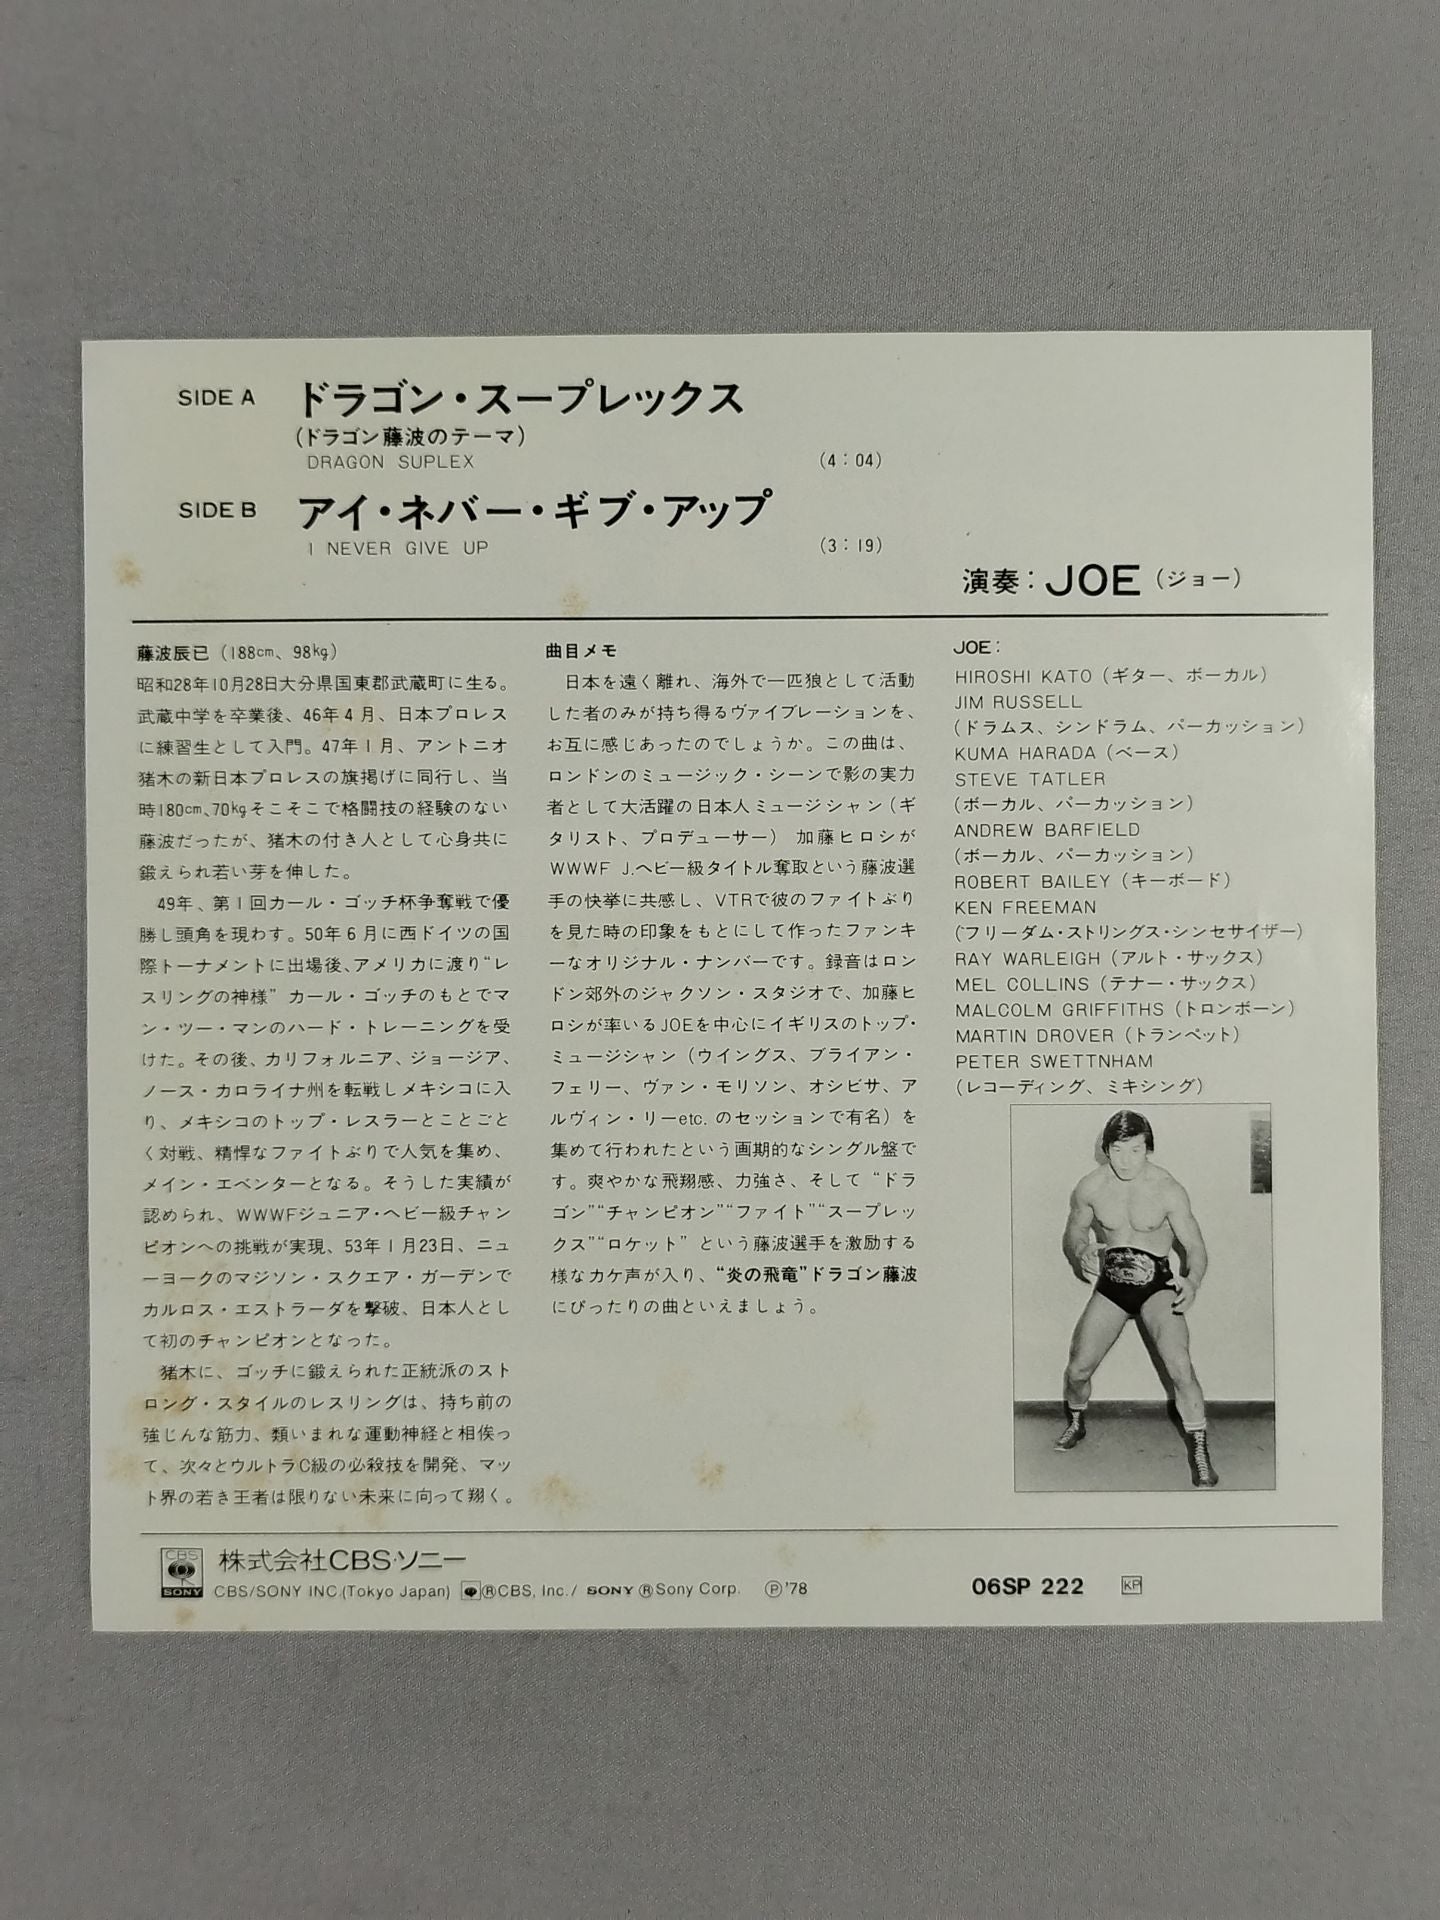 SIDE A ドラゴン・スープレックス
(ドラゴン藤波のテーマ)
DRAGON SUPLEX (4:04)
SIDE B アイ・ネバー・ギブ・アップ
I NEVER GIVE UP (3:19)
演奏:JOE(ジョー)
藤波辰巳(188cm、98kg)
昭和28年10月28日大分県国東郡武蔵町に生る。
武蔵中学を卒業後、46年4月、日本プロレス
に練習生として入門。47年1月、アントニオ
猪木の新日本プロレスの旗揚げに同行し、当
時180cm、70kgそこそこで格闘技の経験のない
藤波だったが、猪木の付き人として心身共に
鍛えられ若い芽を伸した。
49年、第1回カール・ゴッチ杯争奪戦で優
勝し頭角を現わす。50年6月に西ドイツの国
際トーナメントに出場後、アメリカに渡り“レ
スリングの神様”カール・ゴッチのもとでマ
ン・ツー・マンのハード・トレーニングを受
けた。その後、カリフォルニア、ジョージア、
ノース・カロライナ州を転戦しメキシコに入
り、メキシコのトップ・レスラーとことごと
く対戦、精悍なファイトぶりで人気を集め、
メイン・エベンターとなる。そうした実績が
認められ、WWWFジュニア・ヘビー級チャン
ピオンへの挑戦が実現、53年1月23日、ニュ
ーヨークのマジソン・スクエア・ガーデンで
カルロス・エストラーダを撃破、日本人とし
て初のチャンピオンとなった。
猪木に、ゴッチに鍛えられた正統派のスト
ロング・スタイルのレスリングは、持ち前の
強じんな筋力、類いまれな運動神経と相俟っ
て、次々とウルトラC級の必殺技を開発、マッ
ト界の若き王者は限りない未来に向って翔く。
曲目メモ
日本を遠く離れ、海外で一匹狼として活動
した者のみが持ち得るヴァイブレーションを、
お互に感じあったのでしょうか。この曲は、
ロンドンのミュージック・シーンで影の実力
者として大活躍の日本人ミュージシャン(ギ
タリスト、プロデューサー) 加藤ヒロシが
WWWF J.ヘビー級タイトル奪取という藤波選
手の快挙に共感し、VTRで彼のファイトぶり
を見た時の印象をもとにして作ったファンキ
ーなオリジナル・ナンバーです。録音はロン
ドン郊外のジャクソン・スタジオで、加藤ヒ
ロシが率いるJOEを中心にイギリスのトップ・
ミュージシャン(ウイングス、ブライアン・
フェリー、ヴァン・モリソン、オシビサ、ア
ルヴィン・リーetc.のセッションで有名)を
集めて行われたという画期的なシングル盤で
す。爽やかな飛翔感、力強さ、そして“ドラ
ゴン”“チャンピオン”“ファイト”“スープレッ
クス”“ロケット”という藤波選手を激励する
様なカケ声が入り、“炎の飛竜”ドラゴン藤波
にぴったりの曲といえましょう。
JOE:
HIROSHI KATO(ギター、ボーカル)
JIM RUSSELL
(ドラムス、シンドラム、パーカッション)
KUMA HARADA(ベース)
STEVE TATLER
(ボーカル、パーカッション)
ANDREW BARFIELD
(ボーカル、パーカッション)
ROBERT BAILEY(キーボード)
KEN FREEMAN
(フリーダム・ストリングス・シンセサイザー)
RAY WARLEIGH(アルト・サックス)
MEL COLLINS(テナー・サックス)
MALCOLM GRIFFITHS(トロンボーン)
MARTIN DROVER(トランペット)
PETER SWETTNHAM
(レコーディング、ミキシング)
CBS SONY 株式会社CBS・ソニー
CBS/SONY INC.(Tokyo Japan) ®CBS, Inc./ SONY ®Sony Corp. ℗'78 06SP 222 KP